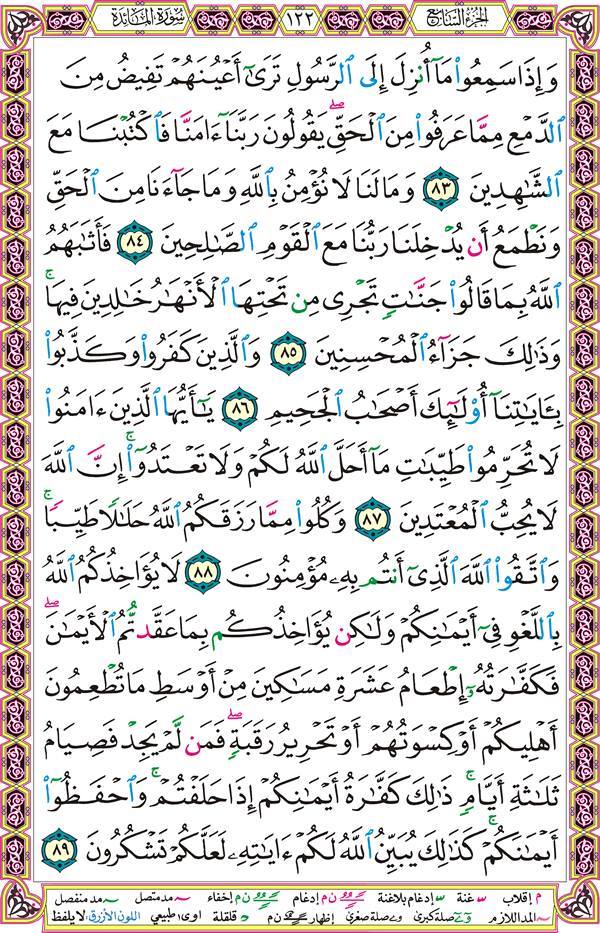 الجزء السابع ١٢٢ سورة المائدة
وَإِذَا سَمِعُوا۟ مَآ أُنزِلَ إِلَى ٱلرَّسُولِ تَرَىٰٓ أَعْيُنَهُمْ تَفِيضُ مِنَ
ٱلدَّمْعِ مِمَّا عَرَفُوا۟ مِنَ ٱلْحَقِّ ۖ يَقُولُونَ رَبَّنَآ ءَامَنَّا فَٱكْتُبْنَا مَعَ
ٱلشَّـٰهِدِينَ ٨٣ وَمَا لَنَا لَا نُؤْمِنُ بِٱللَّهِ وَمَا جَآءَنَا مِنَ ٱلْحَقِّ
وَنَطْمَعُ أَن يُدْخِلَنَا رَبُّنَا مَعَ ٱلْقَوْمِ ٱلصَّـٰلِحِينَ ٨٤ فَأَثَـٰبَهُمُ
ٱللَّهُ بِمَا قَالُوا۟ جَنَّـٰتٍ تَجْرِى مِن تَحْتِهَا ٱلْأَنْهَـٰرُ خَـٰلِدِينَ فِيهَا ۚ
وَذَٰلِكَ جَزَآءُ ٱلْمُحْسِنِينَ ٨٥ وَٱلَّذِينَ كَفَرُوا۟ وَكَذَّبُوا۟
بِـَٔايَـٰتِنَآ أُو۟لَـٰٓئِكَ أَصْحَـٰبُ ٱلْجَحِيمِ ٨٦ يَـٰٓأَيُّهَا ٱلَّذِينَ ءَامَنُوا۟
لَا تُحَرِّمُوا۟ طَيِّبَـٰتِ مَآ أَحَلَّ ٱللَّهُ لَكُمْ وَلَا تَعْتَدُوٓا۟ ۚ إِنَّ ٱللَّهَ
لَا يُحِبُّ ٱلْمُعْتَدِينَ ٨٧ وَكُلُوا۟ مِمَّا رَزَقَكُمُ ٱللَّهُ حَلَـٰلًا طَيِّبًا ۚ
وَٱتَّقُوا۟ ٱللَّهَ ٱلَّذِىٓ أَنتُم بِهِۦ مُؤْمِنُونَ ٨٨ لَا يُؤَاخِذُكُمُ ٱللَّهُ
بِٱللَّغْوِ فِىٓ أَيْمَـٰنِكُمْ وَلَـٰكِن يُؤَاخِذُكُم بِمَا عَقَّدتُّمُ ٱلْأَيْمَـٰنَ ۖ
فَكَفَّـٰرَتُهُۥٓ إِطْعَامُ عَشَرَةِ مَسَـٰكِينَ مِنْ أَوْسَطِ مَا تُطْعِمُونَ
أَهْلِيكُمْ أَوْ كِسْوَتُهُمْ أَوْ تَحْرِيرُ رَقَبَةٍ ۖ فَمَن لَّمْ يَجِدْ فَصِيَامُ
ثَلَـٰثَةِ أَيَّامٍ ۚ ذَٰلِكَ كَفَّـٰرَةُ أَيْمَـٰنِكُمْ إِذَا حَلَفْتُمْ ۚ وَٱحْفَظُوٓا۟
أَيْمَـٰنَكُمْ ۚ كَذَٰلِكَ يُبَيِّنُ ٱللَّهُ لَكُمْ ءَايَـٰتِهِۦ لَعَلَّكُمْ تَشْكُرُونَ ٨٩
م إقلاب غنة إدغام بلاغنة ن م إدغام ن م إخفاء مد متصل مد منفصل
المد اللازم صلة كبرى صلة صغرى إظهار ن م قلقلة اوى طبيعي اللون الأزرق: لا يلفظ